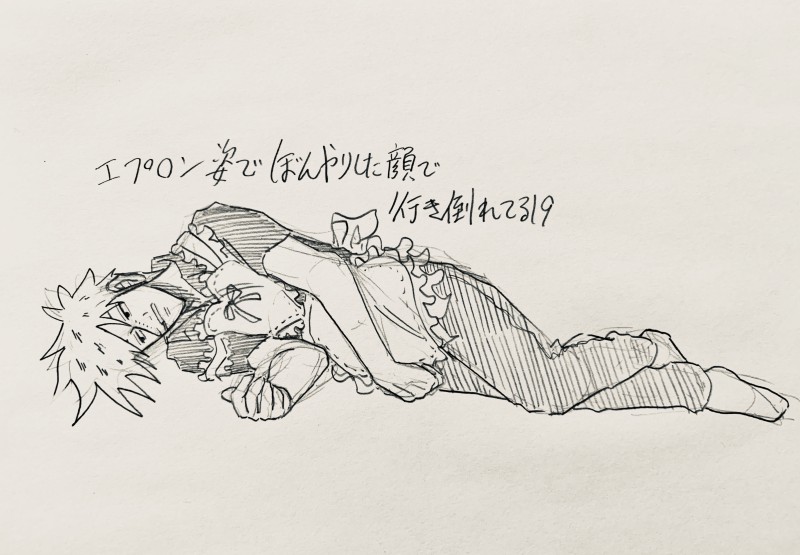 エプロン姿でぼんやりした顔で
行き倒れてる19